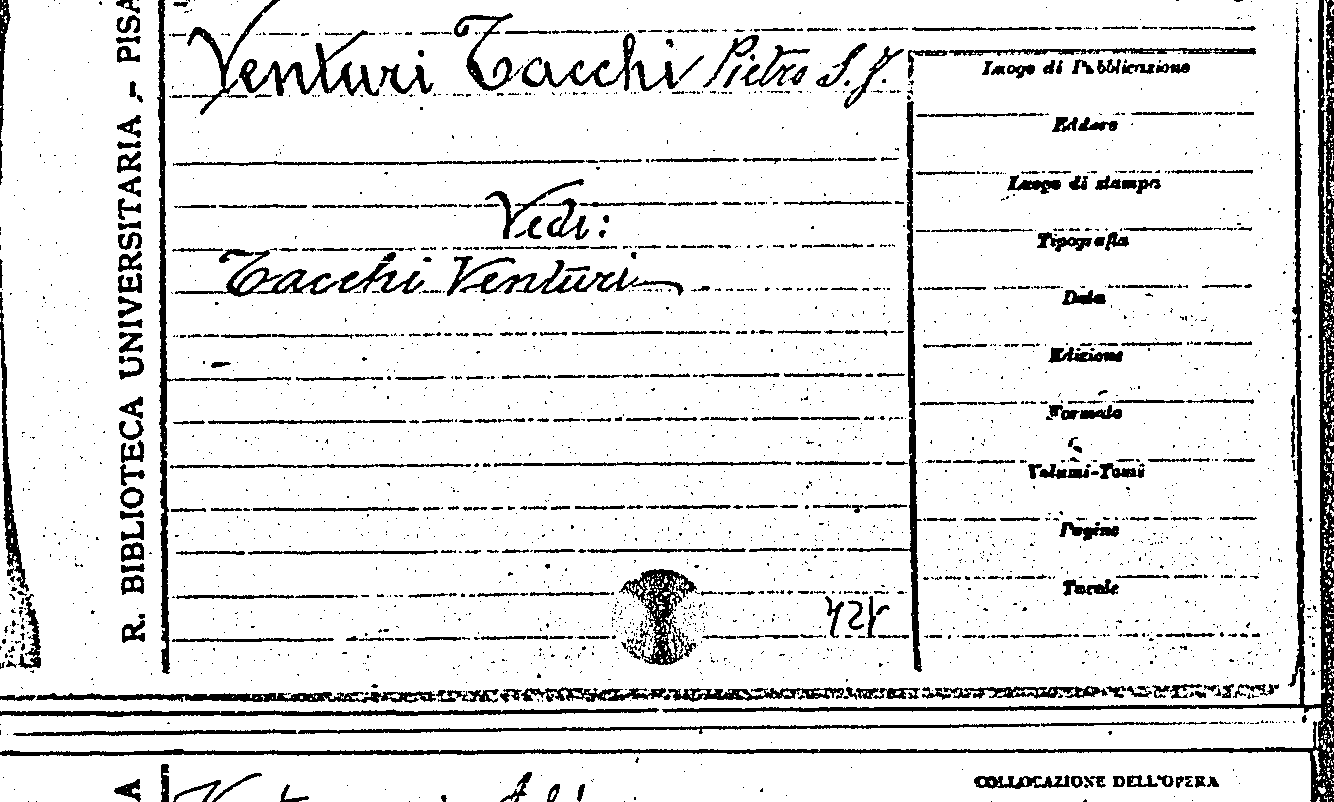 R. BIBLIOTECA UNIVERSITARIA - PISA
Venturi Tacchi Pietro S. J.
Vedi:
Tacchi Venturi
Luogo di Pubblicazione
Editore
Luogo di stampa
Tipografia
Data
Edizione
Formato
Volumi-Tomi
Pagine
Tavole
COLLOCAZIONE DELL'OPERA